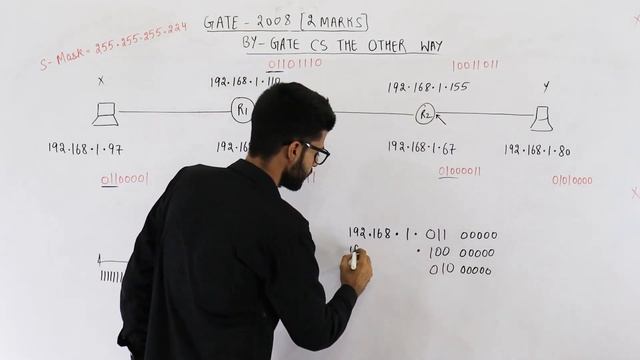 GATE - 2008 [2 MARKS]
BY - GATE CS THE OTHER WAY
S-Mask = 255.255.255.224
01101110
10011011
X
192.168.1.110
192.168.1.155
Y
R1
R2
192.168.1.97
192.168.1.67
192.168.1.80
01100001
01000011
01010000
192.168.1.011 00000
.100 00000
010 00000